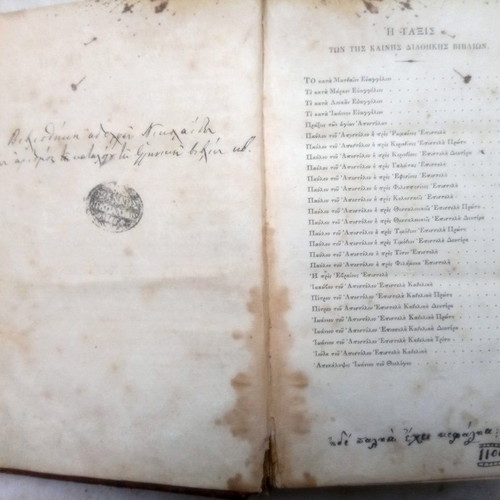 Βιβλιοθήκη
Ἡ ΤΑΞΙΣ
ΤΩΝ ΤΗΣ ΚΑΙΝΗΣ ΔΙΑΘΗΚΗΣ ΒΙΒΛΙΩΝ.
ΤΟ κατὰ Ματθαῖον Εὐαγγέλιον
Τὸ κατὰ Μάρκον Εὐαγγέλιον
Τὸ κατὰ Λουκᾶν Εὐαγγέλιον
Τὸ κατὰ Ἰωάννην Εὐαγγέλιον
Πράξεις τῶν ἁγίων Ἀποστόλων
Παύλου τοῦ Ἀποστόλου ἡ πρὸς Ῥωμαίους Ἐπιστολὴ
Παύλου τοῦ Ἀποστόλου ἡ πρὸς Κορινθίους Ἐπιστολὴ Πρώτη
Παύλου τοῦ Ἀποστόλου ἡ πρὸς Κορινθίους Ἐπιστολὴ Δευτέρα
Παύλου τοῦ Ἀποστόλου ἡ πρὸς Γαλάτας Ἐπιστολὴ
Παύλου τοῦ Ἀποστόλου ἡ πρὸς Ἐφεσίους Ἐπιστολὴ
Παύλου τοῦ Ἀποστόλου ἡ πρὸς Φιλιππησίους Ἐπιστολὴ
Παύλου τοῦ Ἀποστόλου ἡ πρὸς Κολοσσαεῖς Ἐπιστολὴ
Παύλου τοῦ Ἀποστόλου ἡ πρὸς Θεσσαλονικεῖς Ἐπιστολὴ Πρώτη
Παύλου τοῦ Ἀποστόλου ἡ πρὸς Θεσσαλονικεῖς Ἐπιστολὴ Δευτέρα
Παύλου τοῦ Ἀποστόλου ἡ πρὸς Τιμόθεον Ἐπιστολὴ Πρώτη
Παύλου τοῦ Ἀποστόλου ἡ πρὸς Τιμόθεον Ἐπιστολὴ Δευτέρα
Παύλου τοῦ Ἀποστόλου ἡ πρὸς Τίτον Ἐπιστολὴ
Παύλου τοῦ Ἀποστόλου ἡ πρὸς Φιλήμονα Ἐπιστολὴ
Ἡ πρὸς Ἑβραίους Ἐπιστολὴ
Ἰακώβου τοῦ Ἀποστόλου Ἐπιστολὴ Καθολικὴ
Πέτρου τοῦ Ἀποστόλου Ἐπιστολὴ Καθολικὴ Πρώτη
Πέτρου τοῦ Ἀποστόλου Ἐπιστολὴ Καθολικὴ Δευτέρα
Ἰωάννου τοῦ Ἀποστόλου Ἐπιστολὴ Καθολικὴ Πρώτη
Ἰωάννου τοῦ Ἀποστόλου Ἐπιστολὴ Καθολικὴ Δευτέρα
Ἰωάννου τοῦ Ἀποστόλου Ἐπιστολὴ Καθολικὴ Τρίτη
Ἰούδα τοῦ Ἀποστόλου Ἐπιστολὴ Καθολικὴ
Ἀποκάλυψις Ἰωάννου τοῦ Θεολόγου
ἔχει κεφάλαια: